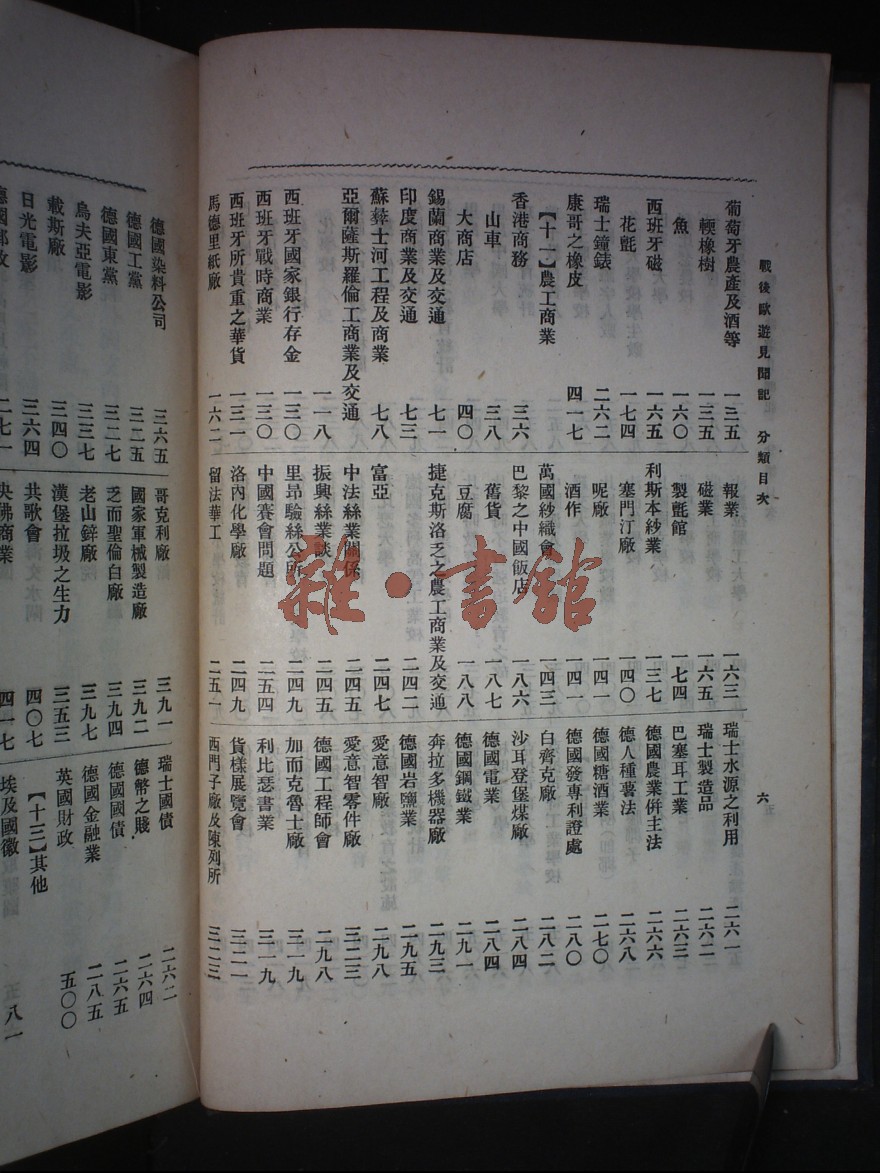 戰後歐遊見聞記　分類目次　六
葡萄牙農產及酒等　一三五
輭橡樹　一三五
魚　一六〇
西班牙磁　一六五
花氈　一七四
瑞士鐘錶　二六二
康哥之橡皮　四一七
【十二】農工商業
香港商務　三六
山車　三八
大商店　四〇
錫蘭商業及交通　七一
印度商業及交通　七三
蘇彝士河工程及商業　七八
亞爾薩斯羅倫工商業及交通　一一八
西班牙國家銀行存金　一三〇
西班牙戰時商業　一三〇
西班牙所貴重之華貨　一三一
馬德里紙廠　一六二
報業　一六三
磁業　一六五
製氈館　一七四
利斯本紗業　一三七
塞門汀廠　一四〇
呢廠　一四一
酒作　一四一
萬國紗織會　一四三
巴黎之中國飯店　一八六
舊貨　一八七
豆腐　一八八
捷克斯洛乏之農工商業及交通
二四二
富亞　二四七
中法絲業關係　二四五
振興絲業談　二四五
里昂驗絲公所　二四九
中國賽會問題　二五四
洛內化學廠　二四九
留法華工　二五一
瑞士水源之利用　二六一
瑞士製造品　二六二
巴塞耳工業　二六三
德國農業併主法　二六六
德人種薯法　二六八
德國糖酒業　二七〇
德國發專利證處　二八〇
白齊克廠　二八二
沙耳登堡煤廠　二八四
德國電業　二八四
德國鋼鐵業　二九一
奔拉多機器廠　二九三
德國岩鹽業　二九五
愛意智廠　二九八
愛意智零件廠　三二三
德國工程師會　二九八
加而克魯士廠　三一九
利比瑟書業　三一九
貨樣展覽會　三二一
西門子廠及陳列所　三二三
德國染料公司　三六五
德國工黨　三二五
德國東黨　三二七
烏夫亞電影　三三七
載斯廠　三四〇
日光電影　三六四
德國郵政　二七一
哥克利廠　三九一
國家軍械製造廠　三九二
乏而聖倫白廠　三九四
老山鋅廠　三九七
漢堡拉圾之生力　三五三
共歌會　四〇七
央佛商業　四一七
瑞士國債　二六二
德幣之賤　二六四
德國國債　二六五
德國金融業　二八五
英國財政　五〇〇
【十三】其他
埃及國徽　八一
雜·書館